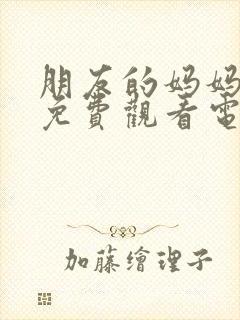 朋友的妈妈
免費觀看電
加藤繪理子